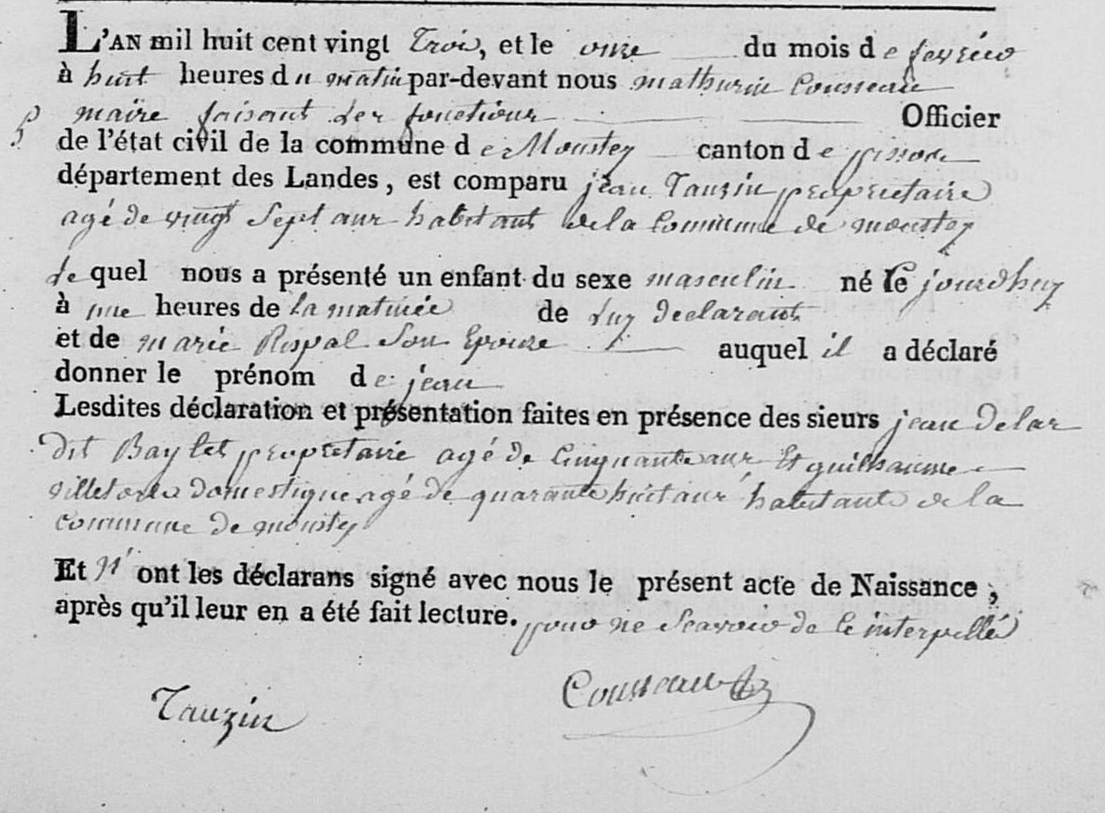 L'AN mil huit cent vingt Trois, et le onze du mois de fevrier
à huit heures du matin par-devant nous mathurin Cousseau
maire faisant les fonctions Officier
de l'état civil de la commune de Moustey canton de pissos
département des Landes, est comparu jean Tauzin proprietaire
agé de vingt Sept ans habitant de la Commune de moustey
Le quel nous a présenté un enfant du sexe masculin né le jourdhuy
à une heures de la matinée de Luy declarant
et de marie Rispal Son Epouze auquel il a déclaré
donner le prénom de jean
Lesdites déclaration et présentation faites en présence des sieurs jean Delas
dit Baylet proprietaire agé de Cinquante ans Et guilhaume
domestique agé de quarante huit ans habitants de la
commune de moustey
Et n' ont les déclarans signé avec nous le présent acte de Naissance,
après qu'il leur en a été fait lecture. pour ne Scavoir de ce interpellés
Tauzin Cousseau